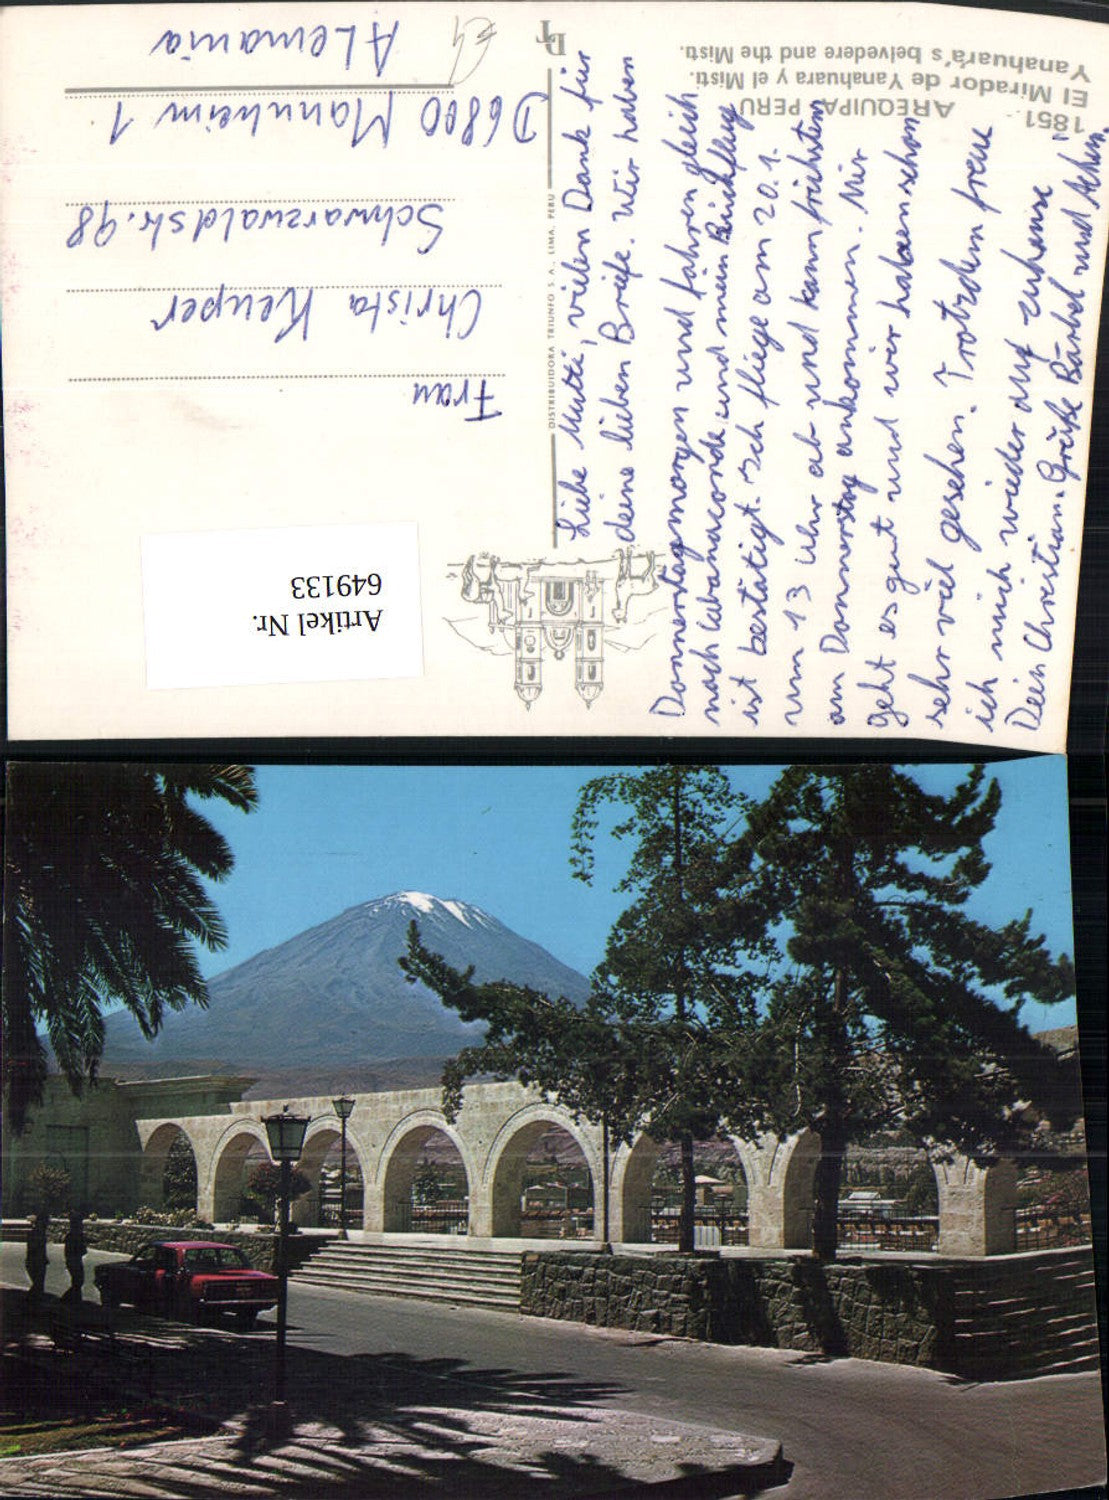 1851 AREQUIPA, PERU
El Mirador de Yanahuara y el Misti.
Yanahuara's belvedere and the Misti.
DT
DISTRIBUIDORA TRIUNFO S.A. LIMA, PERU
Liebe Mutti, vielen Dank für
deine lieben Briefe. Wir haben
Donnerstagmorgen und fahren gleich
nach Cabanaconde und mein Rückflug
ist bestätigt. Ich fliege am 20.1.
um 13 Uhr ab und kann frühstens
am Donnerstag ankommen. Mir
geht es gut und wir haben schon
sehr viel gesehen. Trotzdem freue
ich mich wieder auf zuhause
Dein Christian. Grüße Bärbel und
Frau
Christa Keuper
Schwarzwaldstr. 98
D6800 Mannheim 1
Alemania
Artikel Nr.
649133